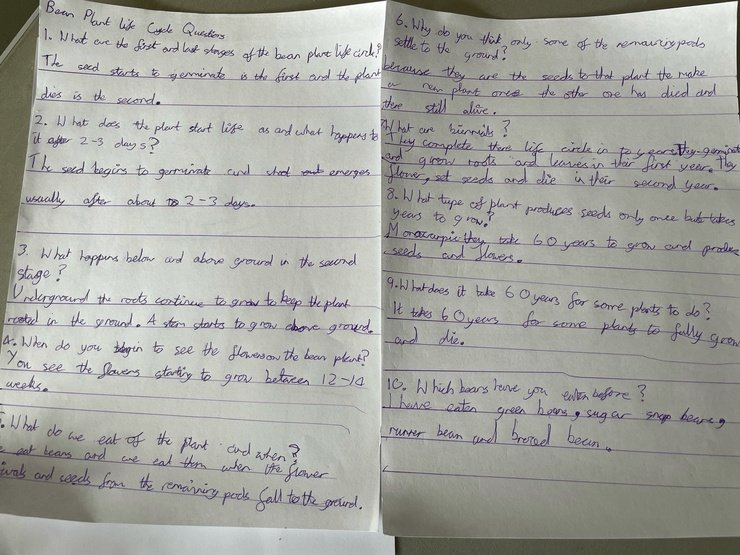 Bean Plant life Cycle Questions
1. What are the first and last stages of the bean plant life circle?
The seed starts to germinate is the first and the plant
dies is the second.
2. What does the plant start life as and what happens to
it after 2-3 days?
The seed begins to germinate and shoot emerges
usually after about 2-3 days.
3. What happens below and above ground in the second
stage?
Underground the roots continue to grow to keep the plant
rooted in the ground. A stem starts to grow above ground.
4. When do you begin to see the flowers on the bean plant?
You see the flowers starting to grow between 12-14
weeks.
5. What do we eat of the plant and when?
eat beans and we eat them when the flower
and seeds from the remaining pods fall to the ground.
6. Why do you think only some of the remauring pods
settle to the ground?
because they are the seeds to that plant the make
a new plant once the other one has died and
there still alive.
What are biennials?
They complete there life circle in to years. They germinate
and grow roots and leaves in their first year. They
flower, set seeds and die in their second year.
8. What type of plant produces seeds only once but takes
years to grow?
Monocarpic they take 60 years to grow and produce
seeds and flowers.
9. What does it take 60 years for some plants to do?
It takes 60 years for some plants to fully grow
and die.
10. Which beans have you eaten before?
I have eaten green beans, sugar snap beans,
runner bean and broad bean.